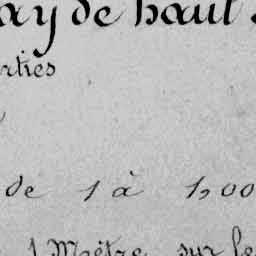 ay de haut
rties
de 1 à 500
1 Mètre sur le